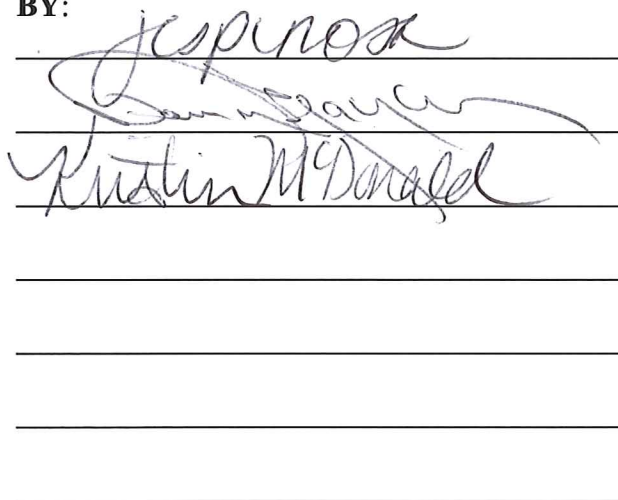 BY:
J Espinosa
Kristin McDonald